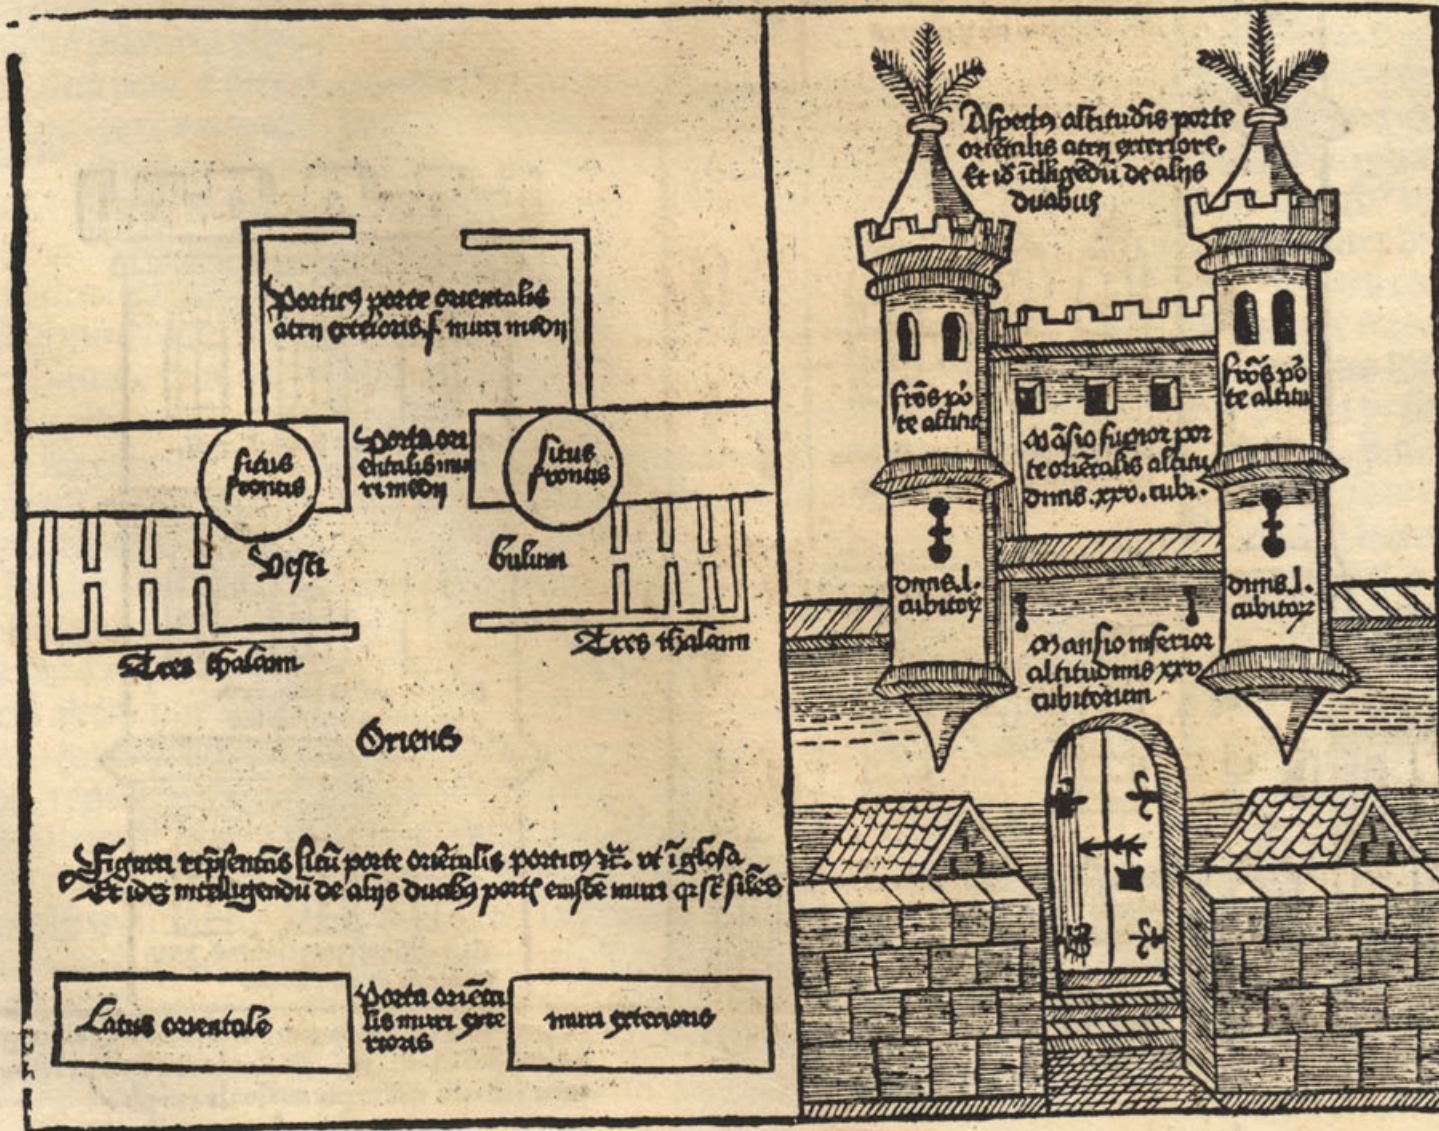 Porticꝰ porte orientalis
atrij exterioris .s. muri medij
situs
frontis
Porta ori
entalis mu
ri medij
situs
frontis
Vesti
bulum
Tres thalami
Tres thalami
Oriens
Figura rep̄sentās sitū porte oriētalis porticꝰ ⁊c̄. vt ī glosa
Et idē intelligendū de alijs duabꝰ portꝭ eiusdē muri q̇ sūt sił̄es
Latus orientale
Porta oriēta
lis muri exte
rioris
muri exterioris
Aspectꝰ altitudīs porte
oriētalis atrij exteriore.
Et iō ītelligēdū de alijs
duabus
frōs por
te altitu
dinis .l.
cubitoꝝ
Māsio supior por
te oriētalis altitu
dinis .xxv. cubi.
frōs por
te altitu
dinis .l.
cubitoꝝ
Mansio inferior
altitudinis xxv
cubitorum